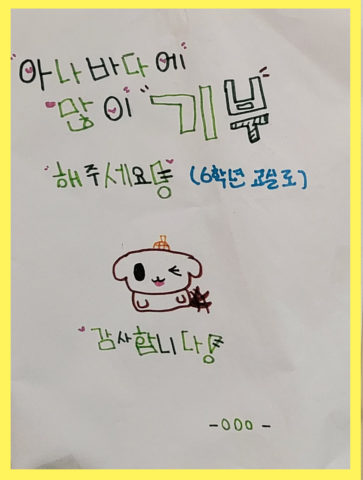 아나바다에
많이 기부
해주세요옹 (6학년 교실로)
감사합니다옹
-000-